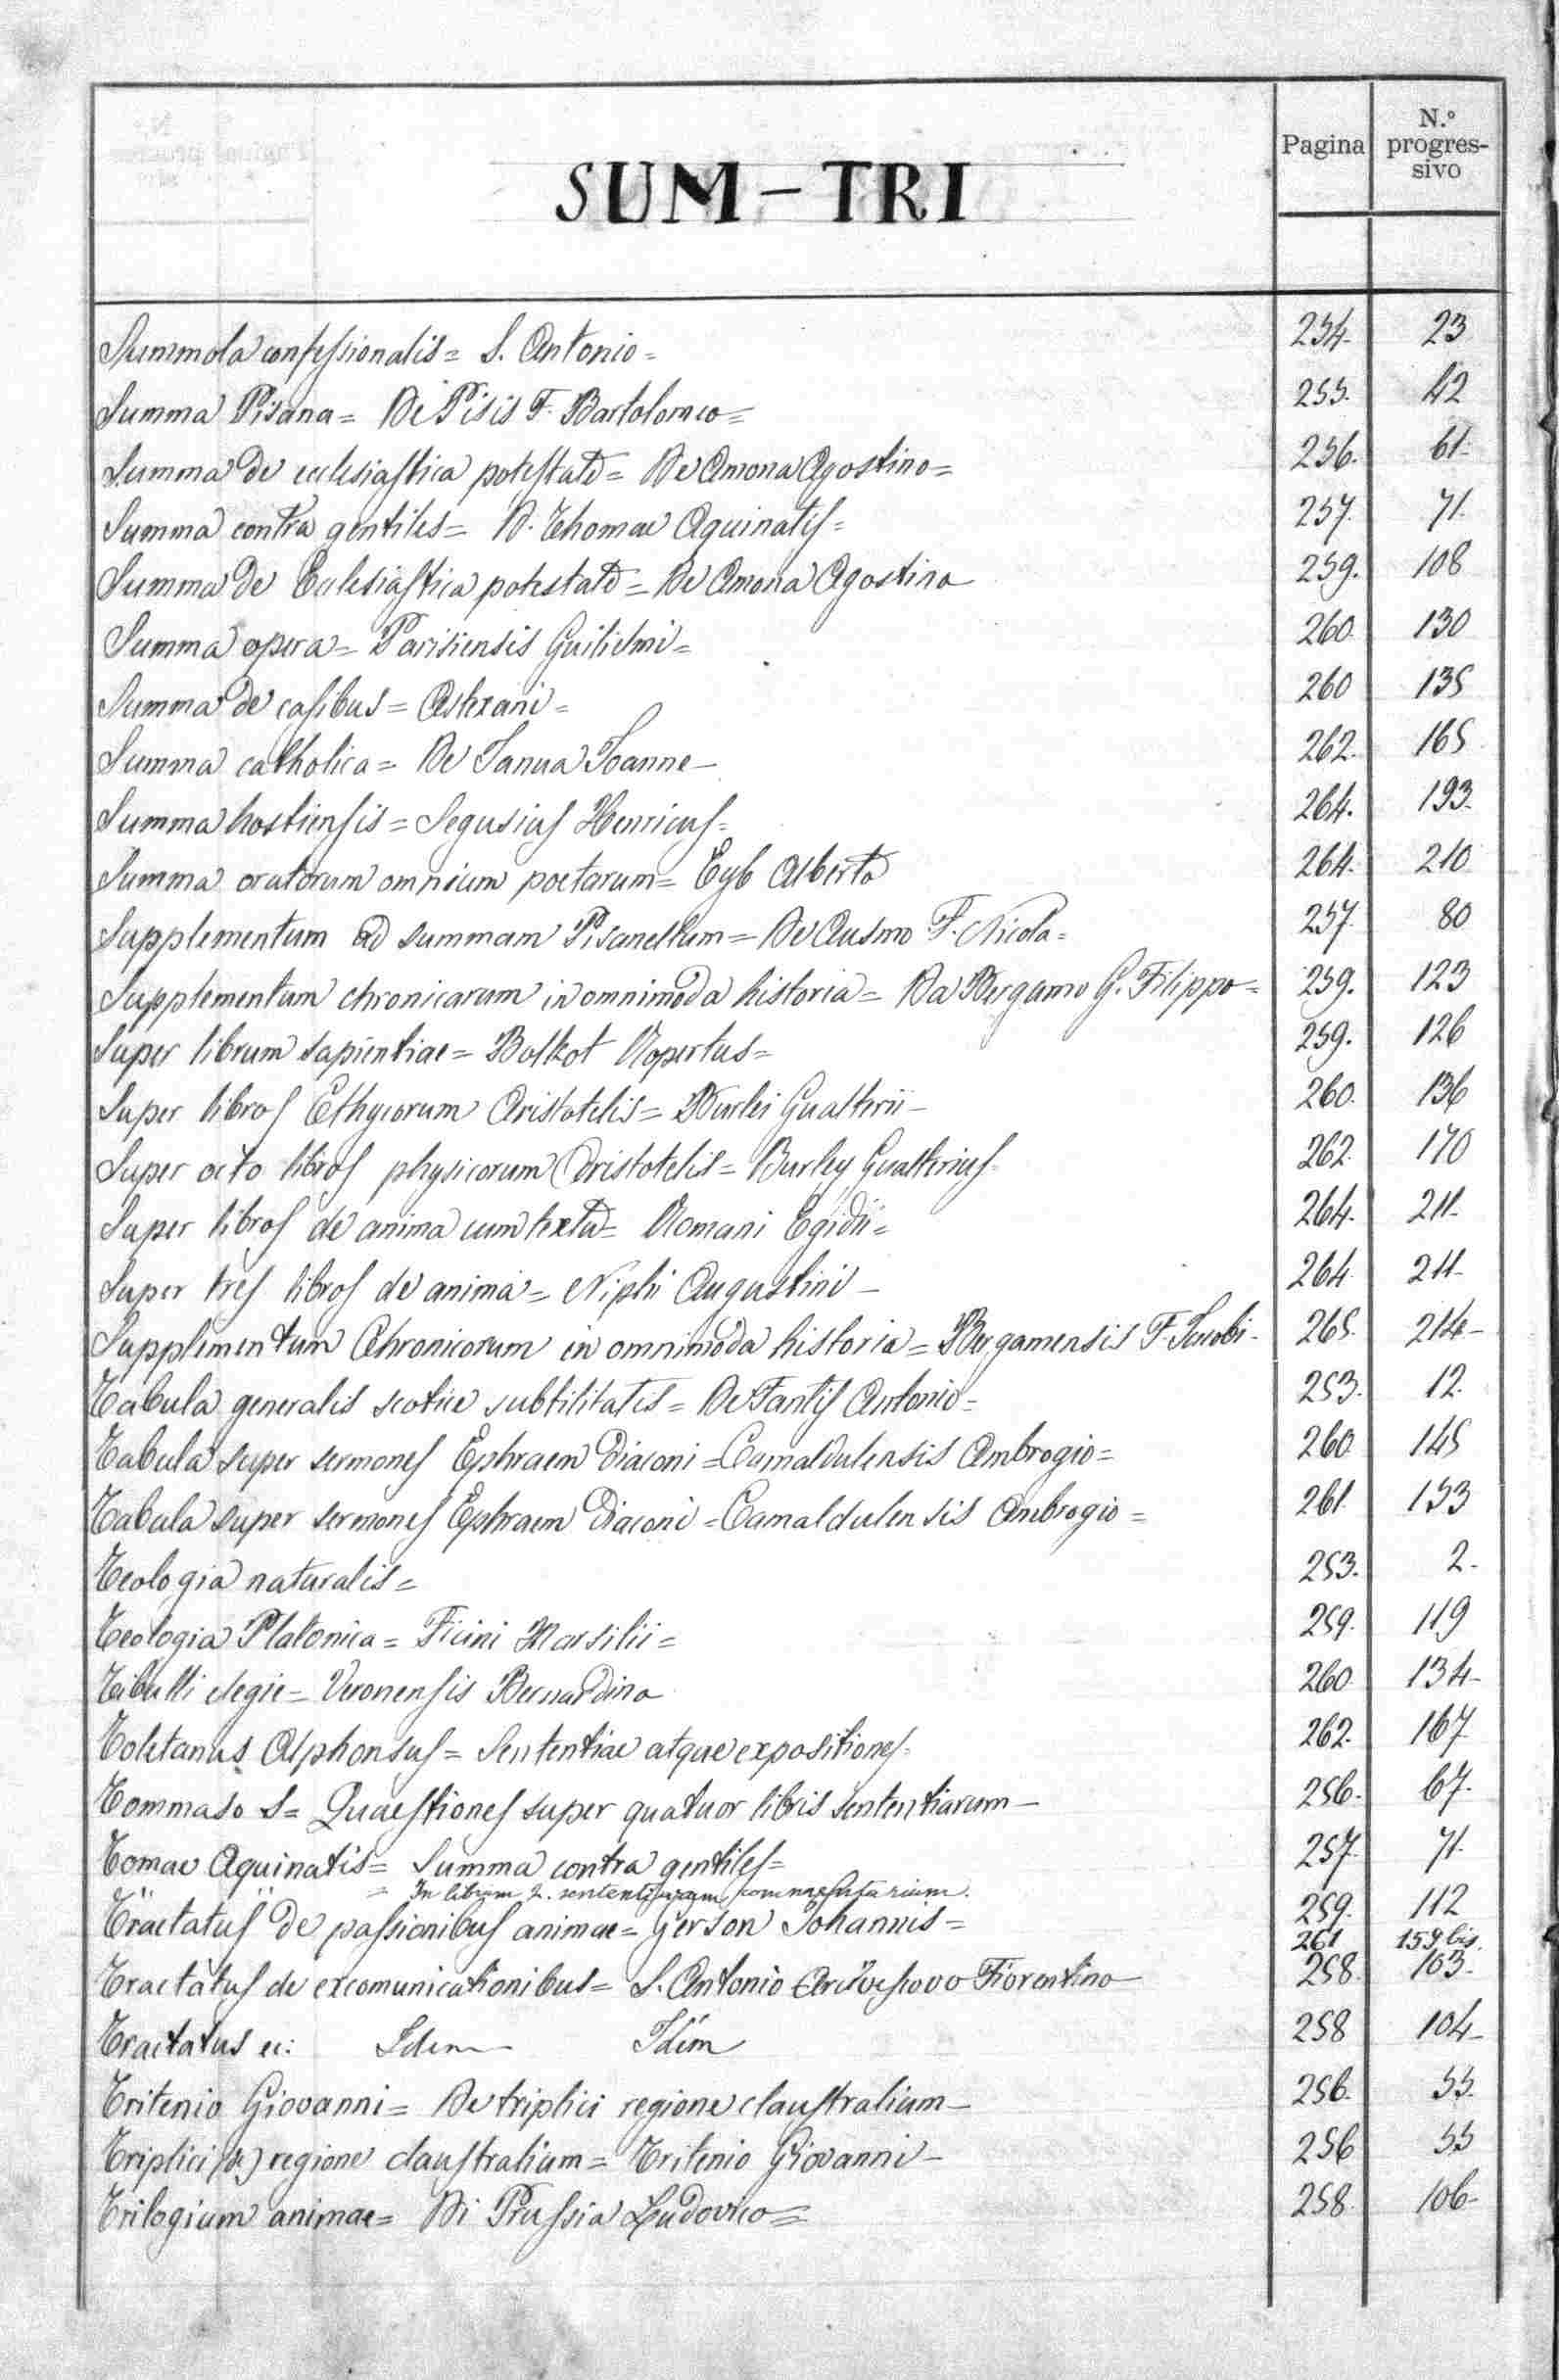 SUM-TRI
Pagina
N.º progres-
sivo
Summola confessionalis = S. Antonio = 254. 23
Summa Pisana = Di Pisis F. Bartolomeo = 255. 42
Summa de ecclesiastica potestate = De Amona Agostino = 256. 61
Summa contra gentiles = D. Thomae Aquinatis = 257. 71.
Summa de Ecclesiastica potestate = De Amona Agostino 259. 108
Summa opera = Parisiensis Guilielmi = 260. 130
Summa de casibus = Astexani = 260 135
Summa catholica = De Janua Joanne - 262. 165
Summa hostiensis = Segusius Henricus = 264. 193.
Summa oratorum omnium poetarum = Eyb Alberto 264. 210
Supplementum ad summam Pisanellum = De Ausmo F. Nicola = 257. 80
Supplementum chronicarum in omnimoda historia = Da Bergamo G. Filippo = 259. 123
Super librum sapientiae = Bolkot Ropertus = 259. 126
Super libros Ethycorum Aristotelis = Burlei Gualterii - 260. 136
Super octo libros physicorum Aristotelis = Burley Gualterius - 262. 170
Super libros de anima cum textu = Romani Egidii = 264. 211-
Super tres libros de anima = Niphi Augustini - 264 211-
Supplementum Chronicorum in omnimoda historia = Bergamensis F. Jacobi - 265. 214-
Tabula generalis scotice subtilitatis = De Fantis Antonio = 253. 12.
Tabula super sermones Ephraem Diaconi = Camaldulensis Ambrogio = 260 145
Tabula super sermones Ephraem Diaconi = Camaldulensis Ambrogio = 261 153
Teologia naturalis = 253. 2.
Teologia Platonica = Ficini Marsilii = 259. 119
Tibulli elegie = Veronensis Bernardino 260. 134-
Toletanus Alphonsus = Sententiae atque expositiones = 262. 167
Tommaso S = Quaestiones super quatuor libris sententiarum - 256. 67.
Tomae Aquinatis = Summa contra gentiles = 257. 71.
= In librum 2. sententiarum commentarium.
Tractatus de passionibus animae = Gerson Johannis = 259. 112
261 159 bis.
Tractatus de excomunicationibus = S. Antonio Arcivescovo Fiorentino 258. 103.
Tractatus ec: Idem Idem 258 104-
Tritenio Giovanni = De triplici regione claustralium - 256. 55.
Triplici (de) regione claustralium = Tritenio Giovanni - 256 55
Trilogium animae = Di Prussia Ludovico = 258. 106-